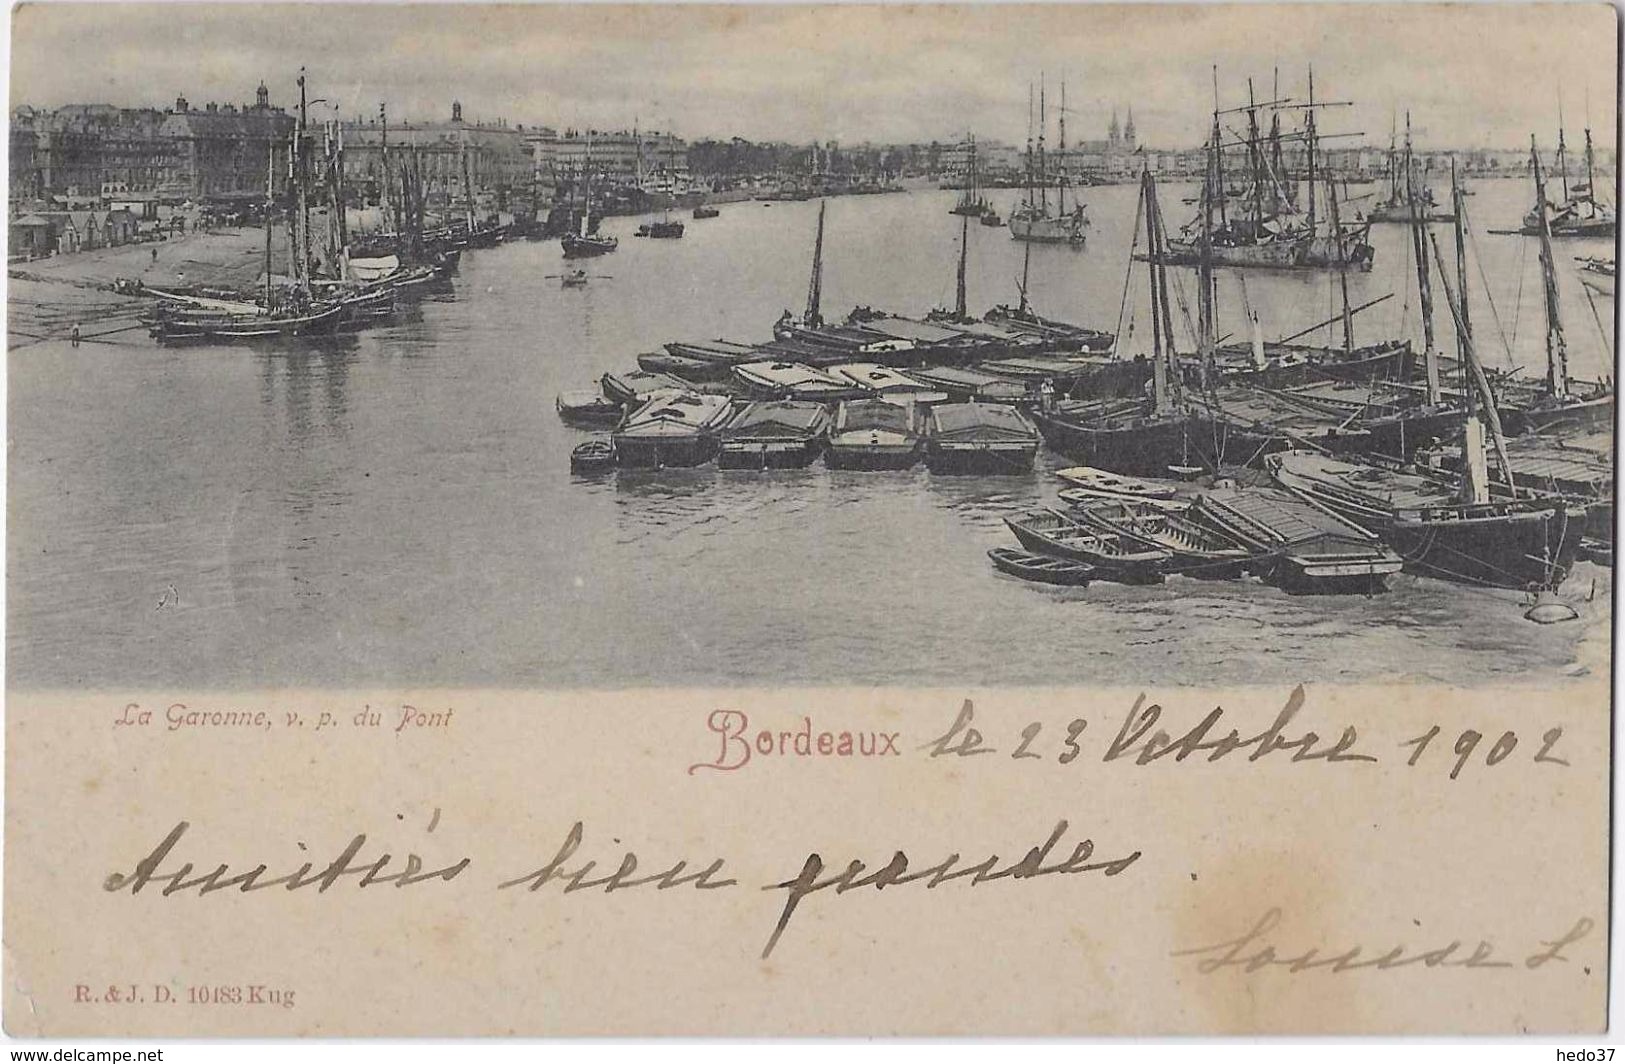 La Garonne, v. p. du Pont
Bordeaux le 23 Octobre 1902
Amitiés bien grandes.
Louise L.
R. & J. D. 10183 Kug
www.delcampe.net
hedo37